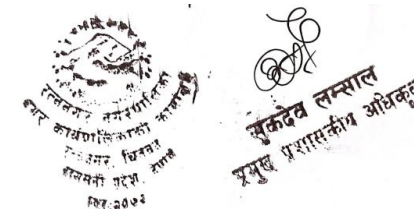 रत्ननगर नगरपालिका
नगर कार्यपालिकाको कार्यालय
रत्ननगर, चितवन
बागमती प्रदेश, नेपाल
२०७३
सुकदेव लम्साल
प्रमुख प्रशासकीय अधिकृत